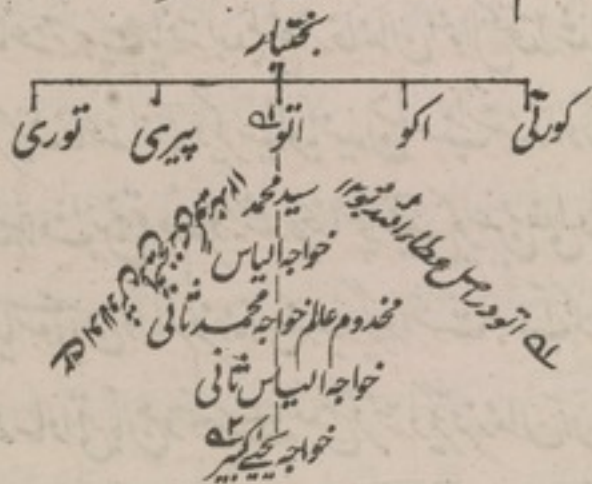 بختیار
کورتی اکو اتو۹۱ پیری توری
سید محمد
خواجہ الیاس
مخدوم عالم خواجہ محمد ثانی
خواجہ الیاس ثانی
خواجہ یحییٰ کبیر۹۲
۹۱ اتو در اصل عطاء اللہ